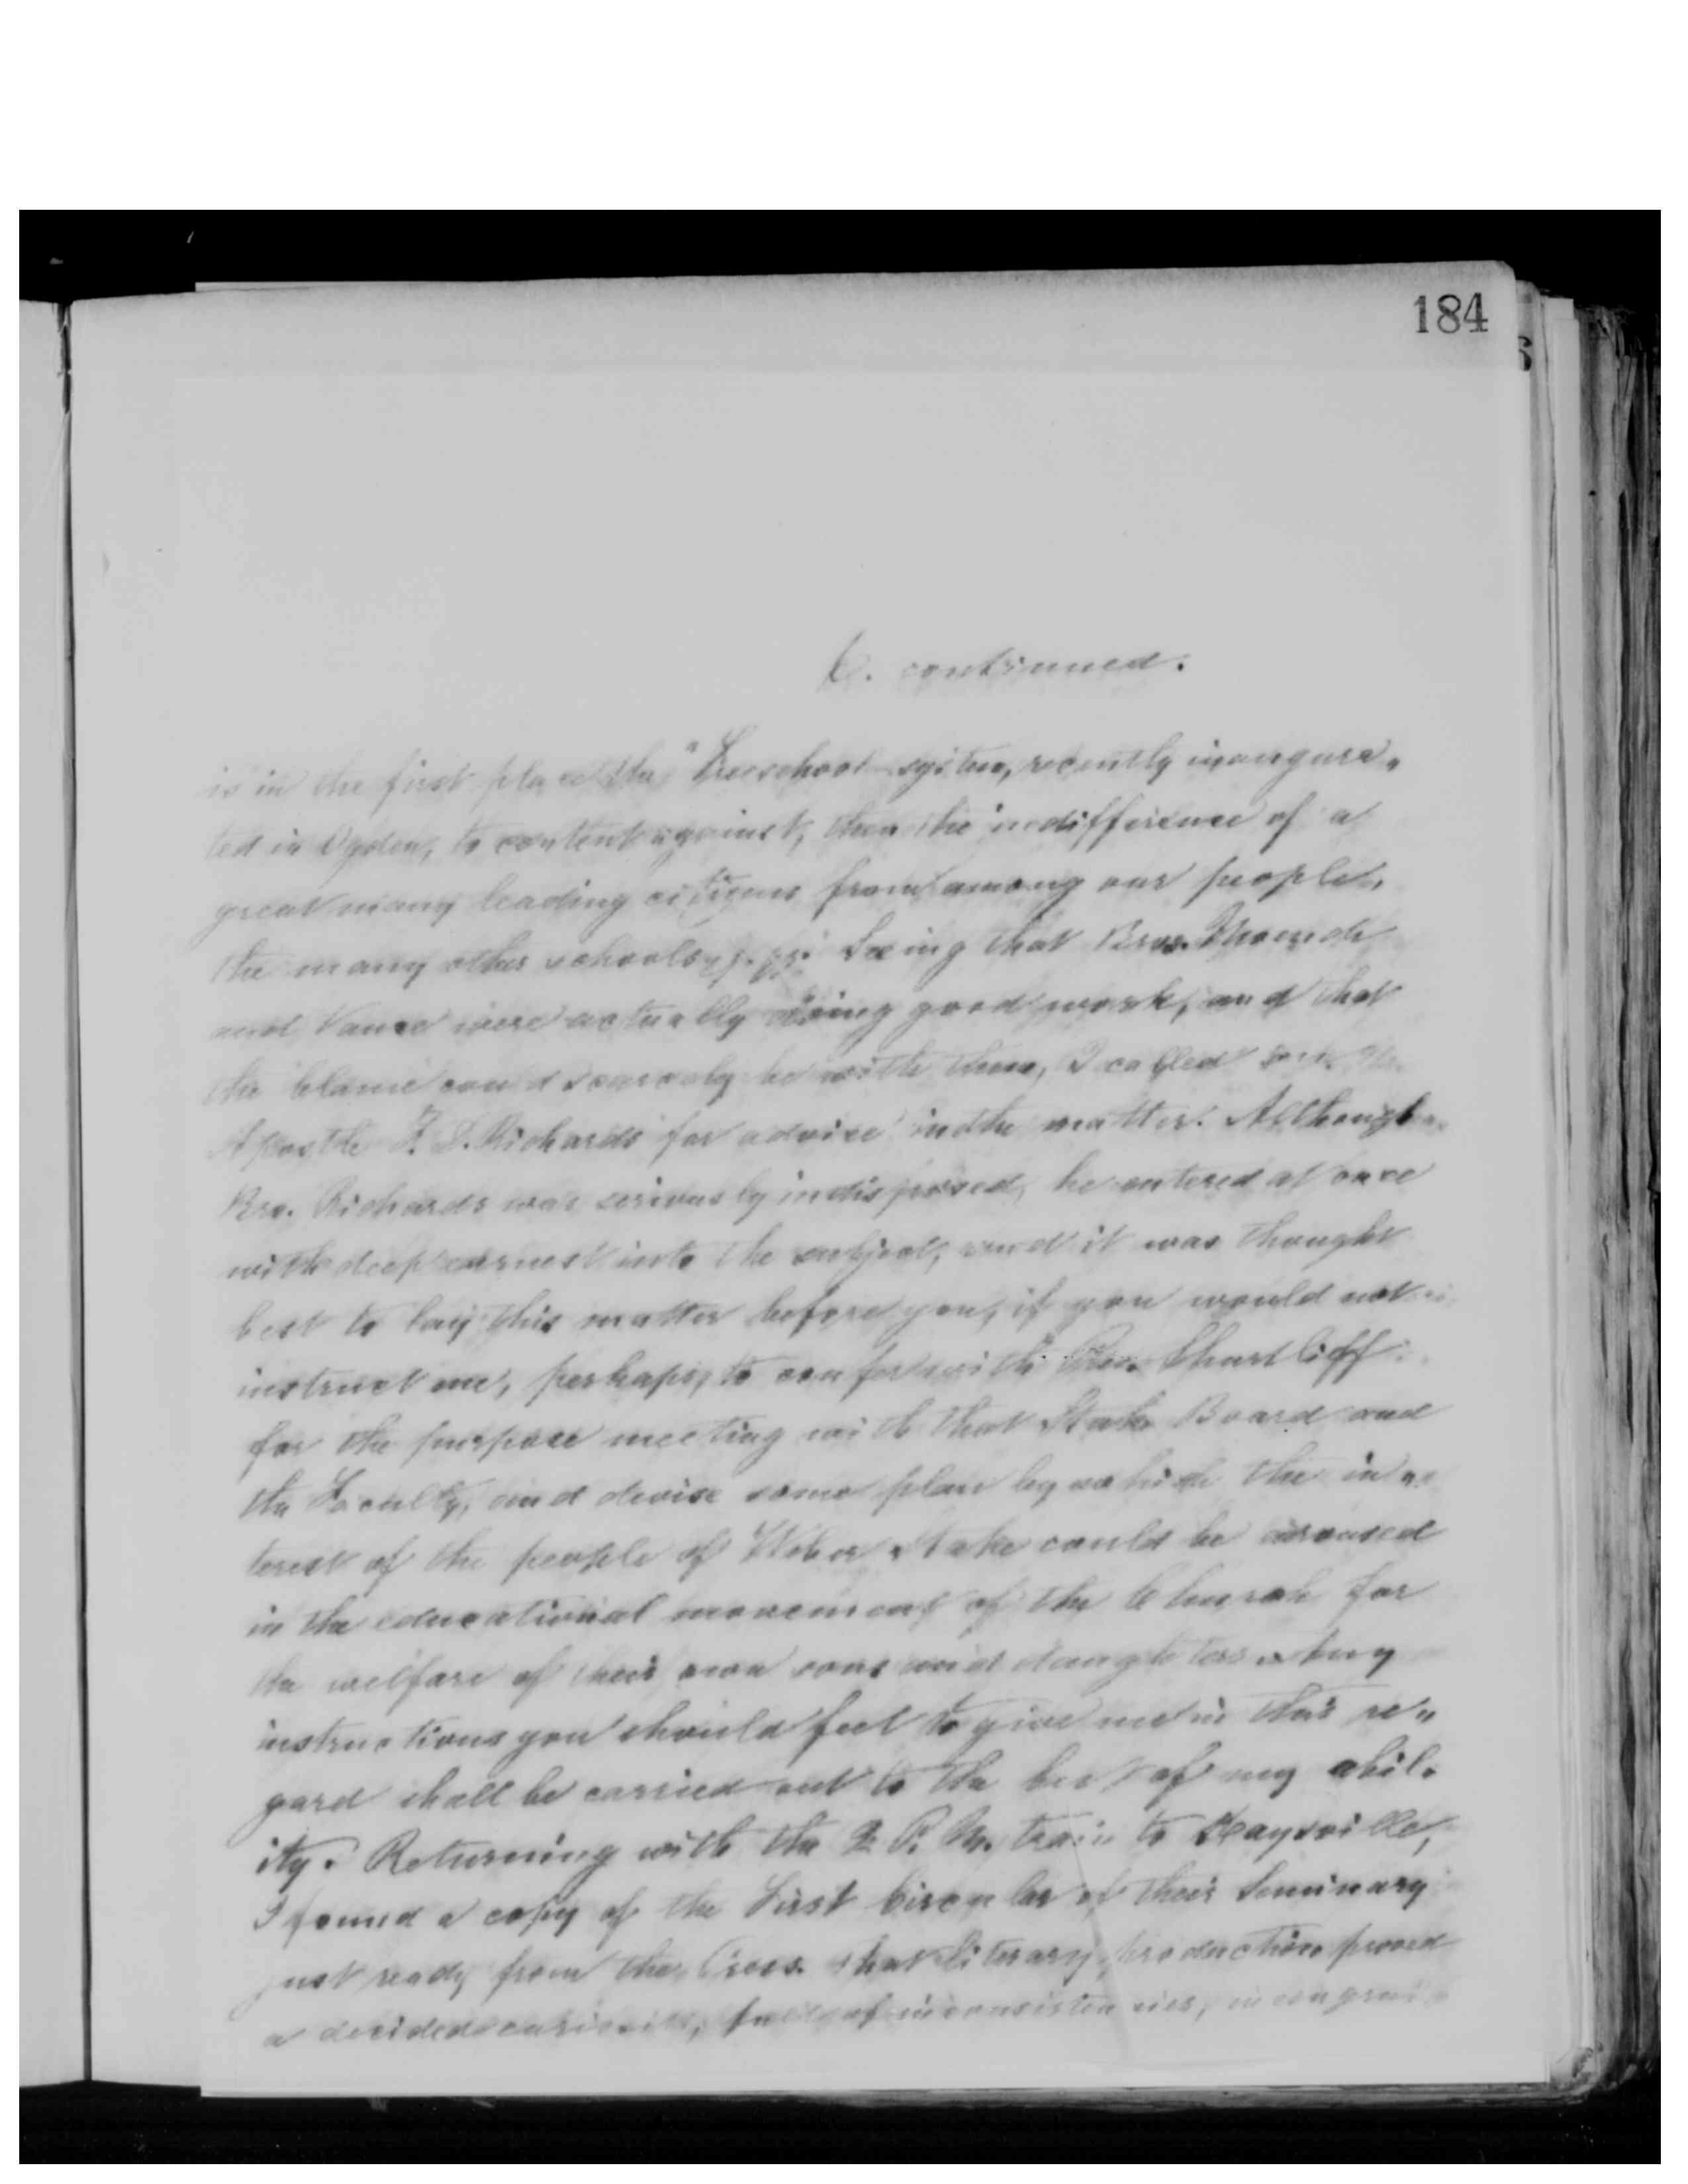 184
C. continued.
is in the first place the "Freeschool system, recently inaugura-
ted in Ogden, to contend against, then the indifference of a
great many leading citizens from among our people,
the many other schools, Seeing that Bros. Moench
and Vance were actually doing good work, and that
the blame could scarcely be with them, I called
Apostle F. D. Richards for advice in the matter. Although
Bro. Richards was seriously indisposed, he entered at once
with deep earnest into the subject, and it was thought
best to lay this matter before you, if you would not
instruct me, perhaps, to confer with Shurtliff
for the purpose meeting with that Stake Board and
the Faculty, and devise some plan by which the in-
terest of the people of Weber Stake could be aroused
in the educational movement of the Church for
the welfare of their own sons and daughters. Any
instructions you should feel to give me in this re-
gard shall be carried out to the best of my abil-
ity. Returning with the P. M. train to Kaysville,
I found a copy of the First Circular of their Seminary
just ready from the Press. That literary production proved
a decided curiosity, full of inconsistencies,